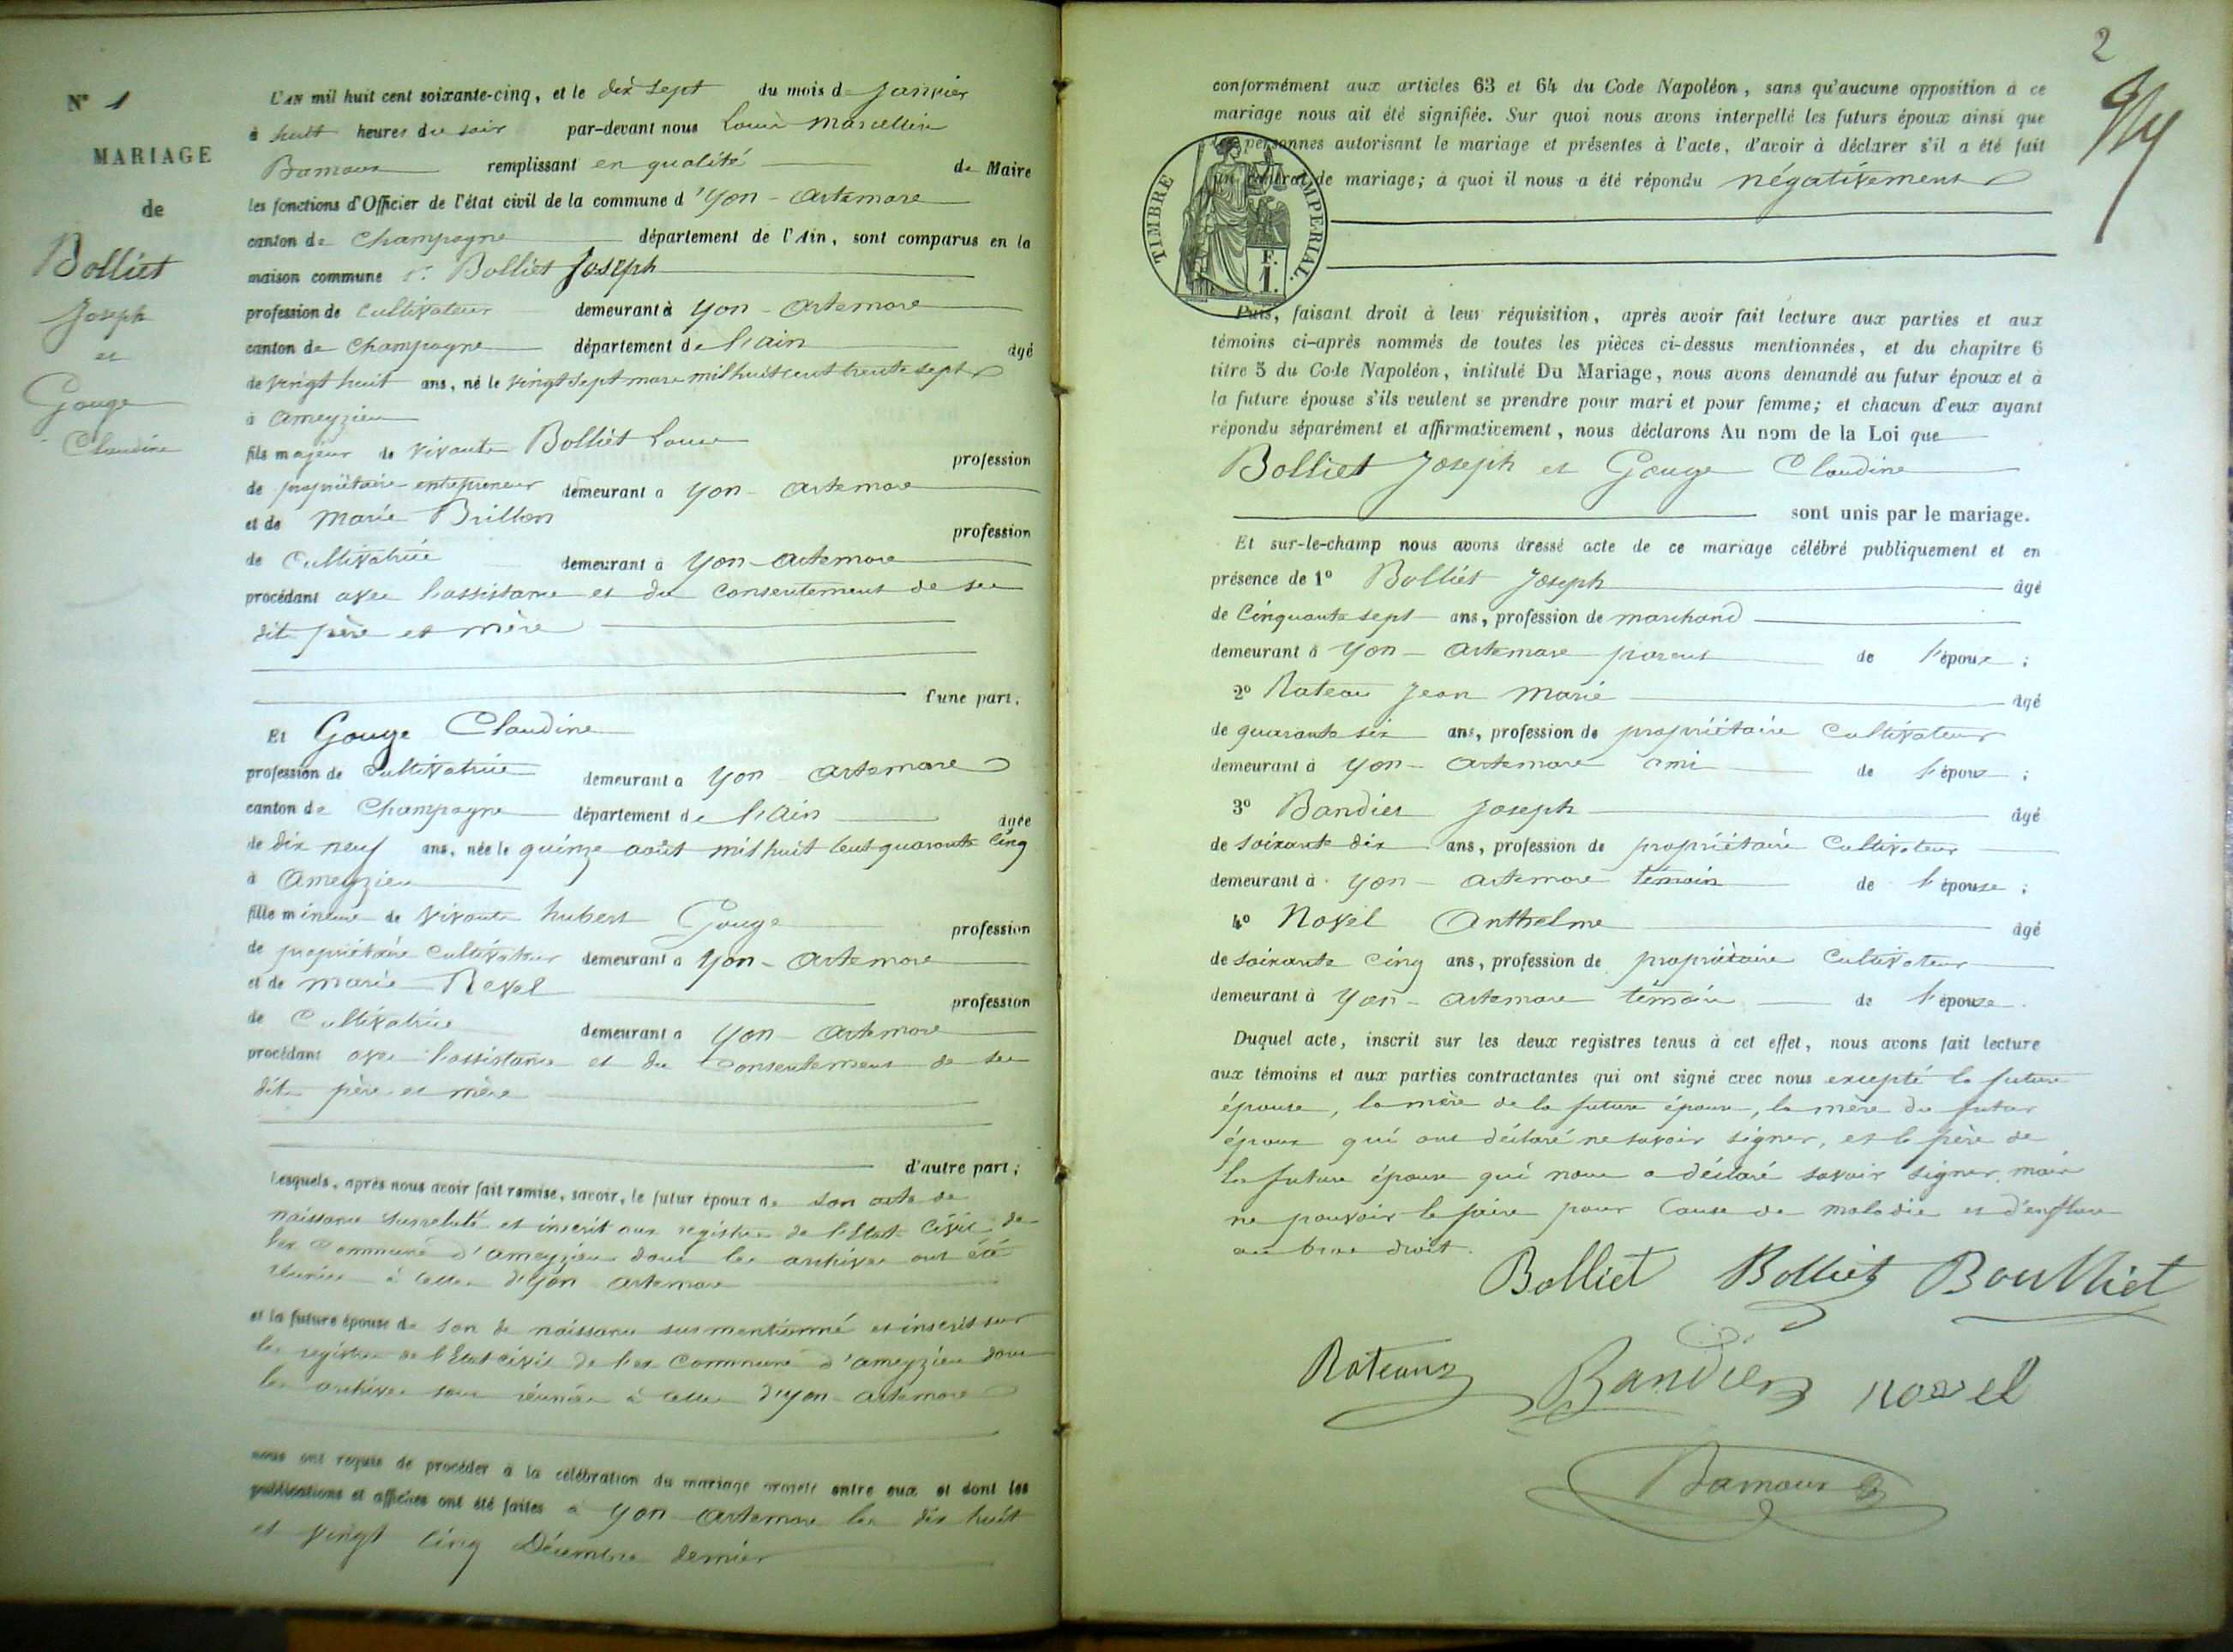 N° 1
MARIAGE
de
Bolliet
Joseph
et
Gouge
Claudine
L'AN mil huit cent soixante-cinq, et le dix sept du mois de Janvier
à huit heures du soir par-devant nous Louis Marcellin
Bamoux remplissant en qualité de Maire
les fonctions d'Officier de l'état civil de la commune d'Yon-Artemare
canton de Champagne département de l'Ain, sont comparus en la
maison commune Sr. Bolliet Joseph
profession de Cultivateur demeurant à Yon-Artemare
canton de Champagne département de l'ain âgé
de vingt huit ans, né le vingt sept mars mil huit cent trente sept
à Ameyzieu
fils majeur de vivants Bolliet Louis profession
de propriétaire-entrepreneur demeurant à Yon-Artemare
et de Marie Brillon profession
de Cultivatrice demeurant à Yon-Artemare
procédant avec l'assistance et du consentement de ses
dits père et mère
d'une part.
Et Gouge Claudine
profession de Cultivatrice demeurant à Yon Artemare
canton de Champagne département de l'Ain âgée
de dix neuf ans, née le quinze août mil huit cent quarante cinq
à Ameyzieu
fille mineure de vivants hubert Gouge profession
de propriétaire Cultivateur demeurant à Yon-Artemare
et de Marie Revel profession
de Cultivatrice demeurant à Yon-Artemare
procédant avec l'assistance et du Consentement de ses
dits père et mère
d'autre part;
Lesquels, après nous avoir fait remise, savoir, le futur époux de son acte de
naissance susrelaté et inscrit aux registres de l'Etat Civil de
l'ex Commune d'Ameyzieu dont les archives ont été
réunies à celles d'Yon Artemare
et la future épouse de son de naissance susmentionné et inscrit sur
les registres de l'Etat civil de l'ex Commune d'ameyzieu dont
les archives sont réunies à celles d'Yon-Artemare
nous ont requis de procéder à la célébration du mariage projeté entre eux et dont les
publications et affiches ont été faites à Yon Artemare les dix huit
et vingt cinq Décembre dernier
2
conformément aux articles 63 et 64 du Code Napoléon, sans qu'aucune opposition à ce
mariage nous ait été signifiée. Sur quoi nous avons interpellé les futurs époux ainsi que
les personnes autorisant le mariage et présentes à l'acte, d'avoir à déclarer s'il a été fait
un contrat de mariage; à quoi il nous a été répondu négativement
TIMBRE IMPERIAL.
1 F.
Puis, faisant droit à leur réquisition, après avoir fait lecture aux parties et aux
témoins ci-après nommés de toutes les pièces ci-dessus mentionnées, et du chapitre 6
titre 5 du Code Napoléon, intitulé Du Mariage, nous avons demandé au futur époux et à
la future épouse s'ils veulent se prendre pour mari et pour femme; et chacun d'eux ayant
répondu séparément et affirmativement, nous déclarons Au nom de la Loi que
Bolliet Joseph et Gouge Claudine
sont unis par le mariage.
Et sur-le-champ nous avons dressé acte de ce mariage célébré publiquement et en
présence de 1° Bolliet Joseph âgé
de Cinquante sept ans, profession de marchand
demeurant à Yon-Artemare parent de l'époux;
2° Rateau Jean Marie âgé
de quarante six ans, profession de propriétaire Cultivateur
demeurant à Yon-Artemare ami de l'époux;
3° Bandier Joseph âgé
de soixante dix ans, profession de propriétaire Cultivateur
demeurant à Yon-Artemare témoin de l'épouse;
4° Novel Anthelme âgé
de soixante cinq ans, profession de propriétaire Cultivateur
demeurant à Yon-Artemare témoin de l'épouse.
Duquel acte, inscrit sur les deux registres tenus à cet effet, nous avons fait lecture
aux témoins et aux parties contractantes qui ont signé avec nous excepté la future
épouse, la mère de la future épouse, la mère du futur
époux qui ont déclaré ne savoir signer, et le père de
la future épouse qui nous a déclaré savoir signer mais
ne pouvoir le faire pour Cause de maladie et d'enflure
au bras droit.
Bolliet Bolliet Boulliet
Rateaux Bandier novel
Bamoux